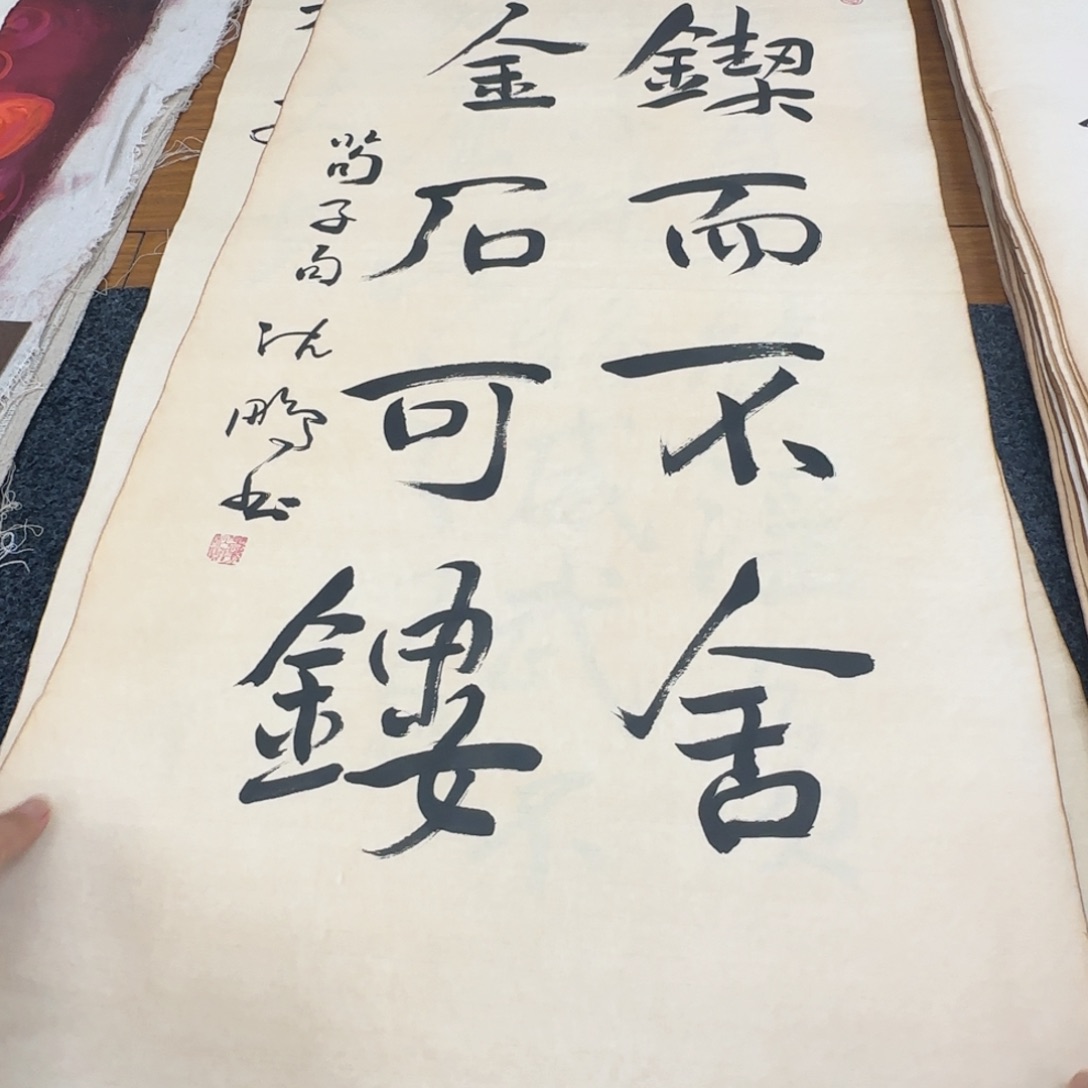 鍥而不舍
金石可鏤
荀子句
沈鵬书